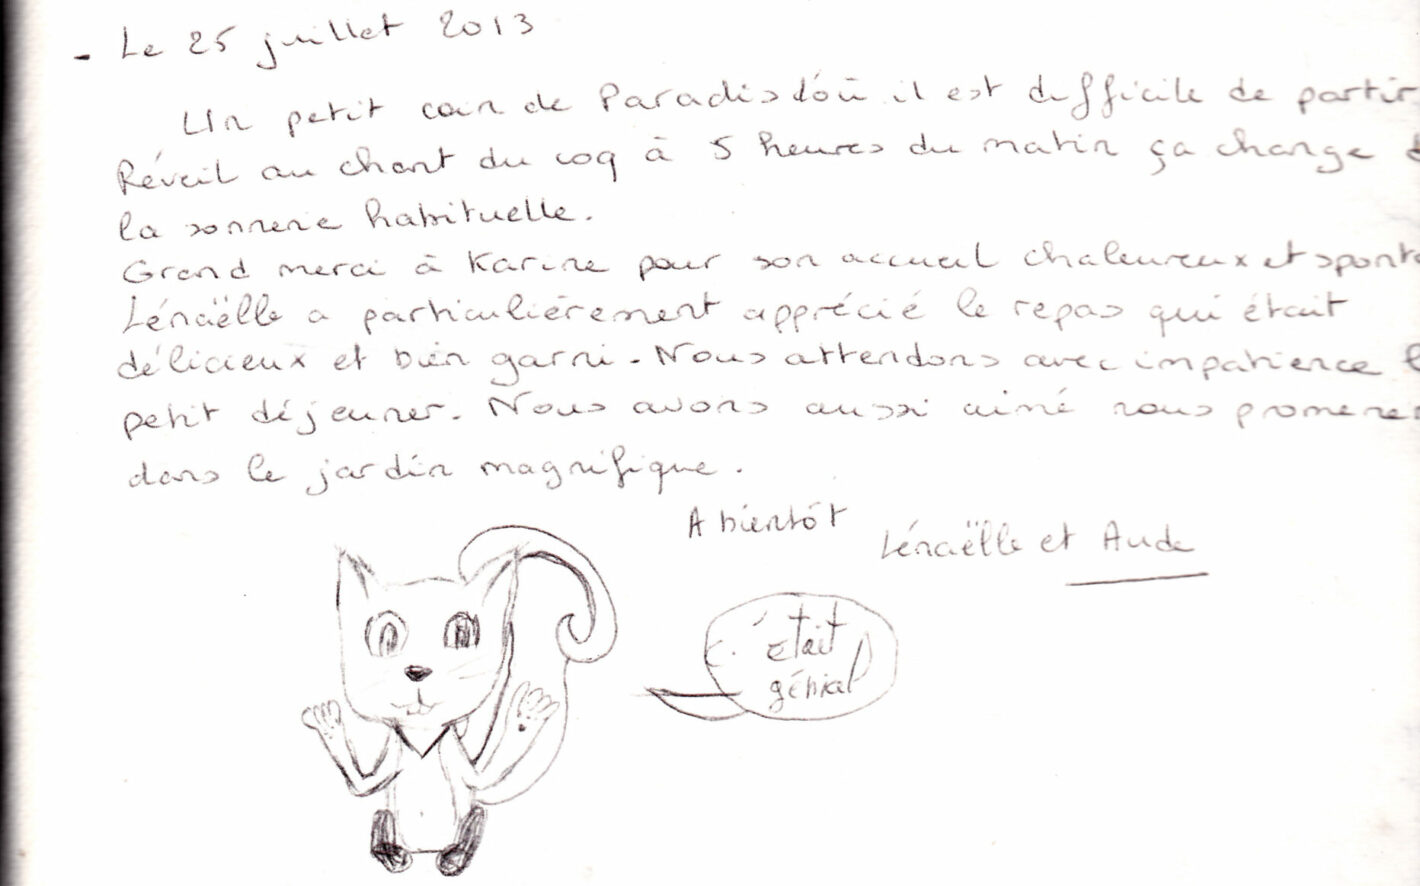 - Le 25 juillet 2013
Un petit coin de Paradis d'où il est difficile de partir
Réveil au chant du coq à 5 heures du matin ça change
la sonnerie habituelle.
Grand merci à Karine pour son accueil chaleureux et spont
Lénaëlle a particulièrement apprécié le repas qui était
délicieux et bien garni. Nous attendons avec impatience
petit déjeuner. Nous avons aussi aimé nous promener
dans le jardin magnifique.
A bientôt
Lénaëlle et Aude
C'était
génial